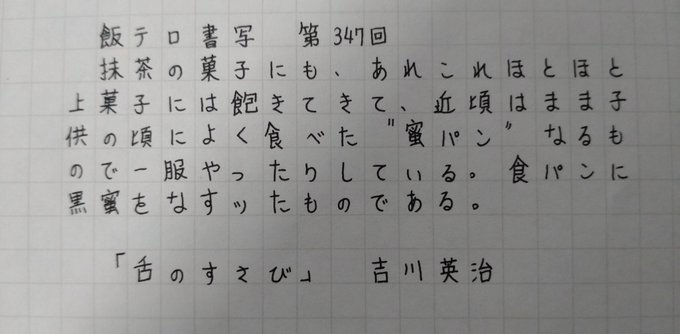 飯テロ書写 第347回
抹茶の菓子にも、あれこれほとほと
上菓子には飽きてきて、近頃はまま子
供の頃によく食べた〝蜜パン〟なるも
ので一服やったりしている。食パンに
黒蜜をなすッたものである。
「舌のすさび」 吉川英治